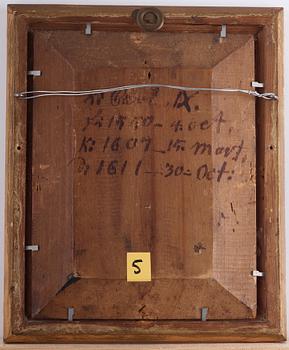 K: Carl, IX.
F: 1550 - 4 oct,
K: 1607 - 15 Mart,
D: 1611 - 30 - Oct:
5